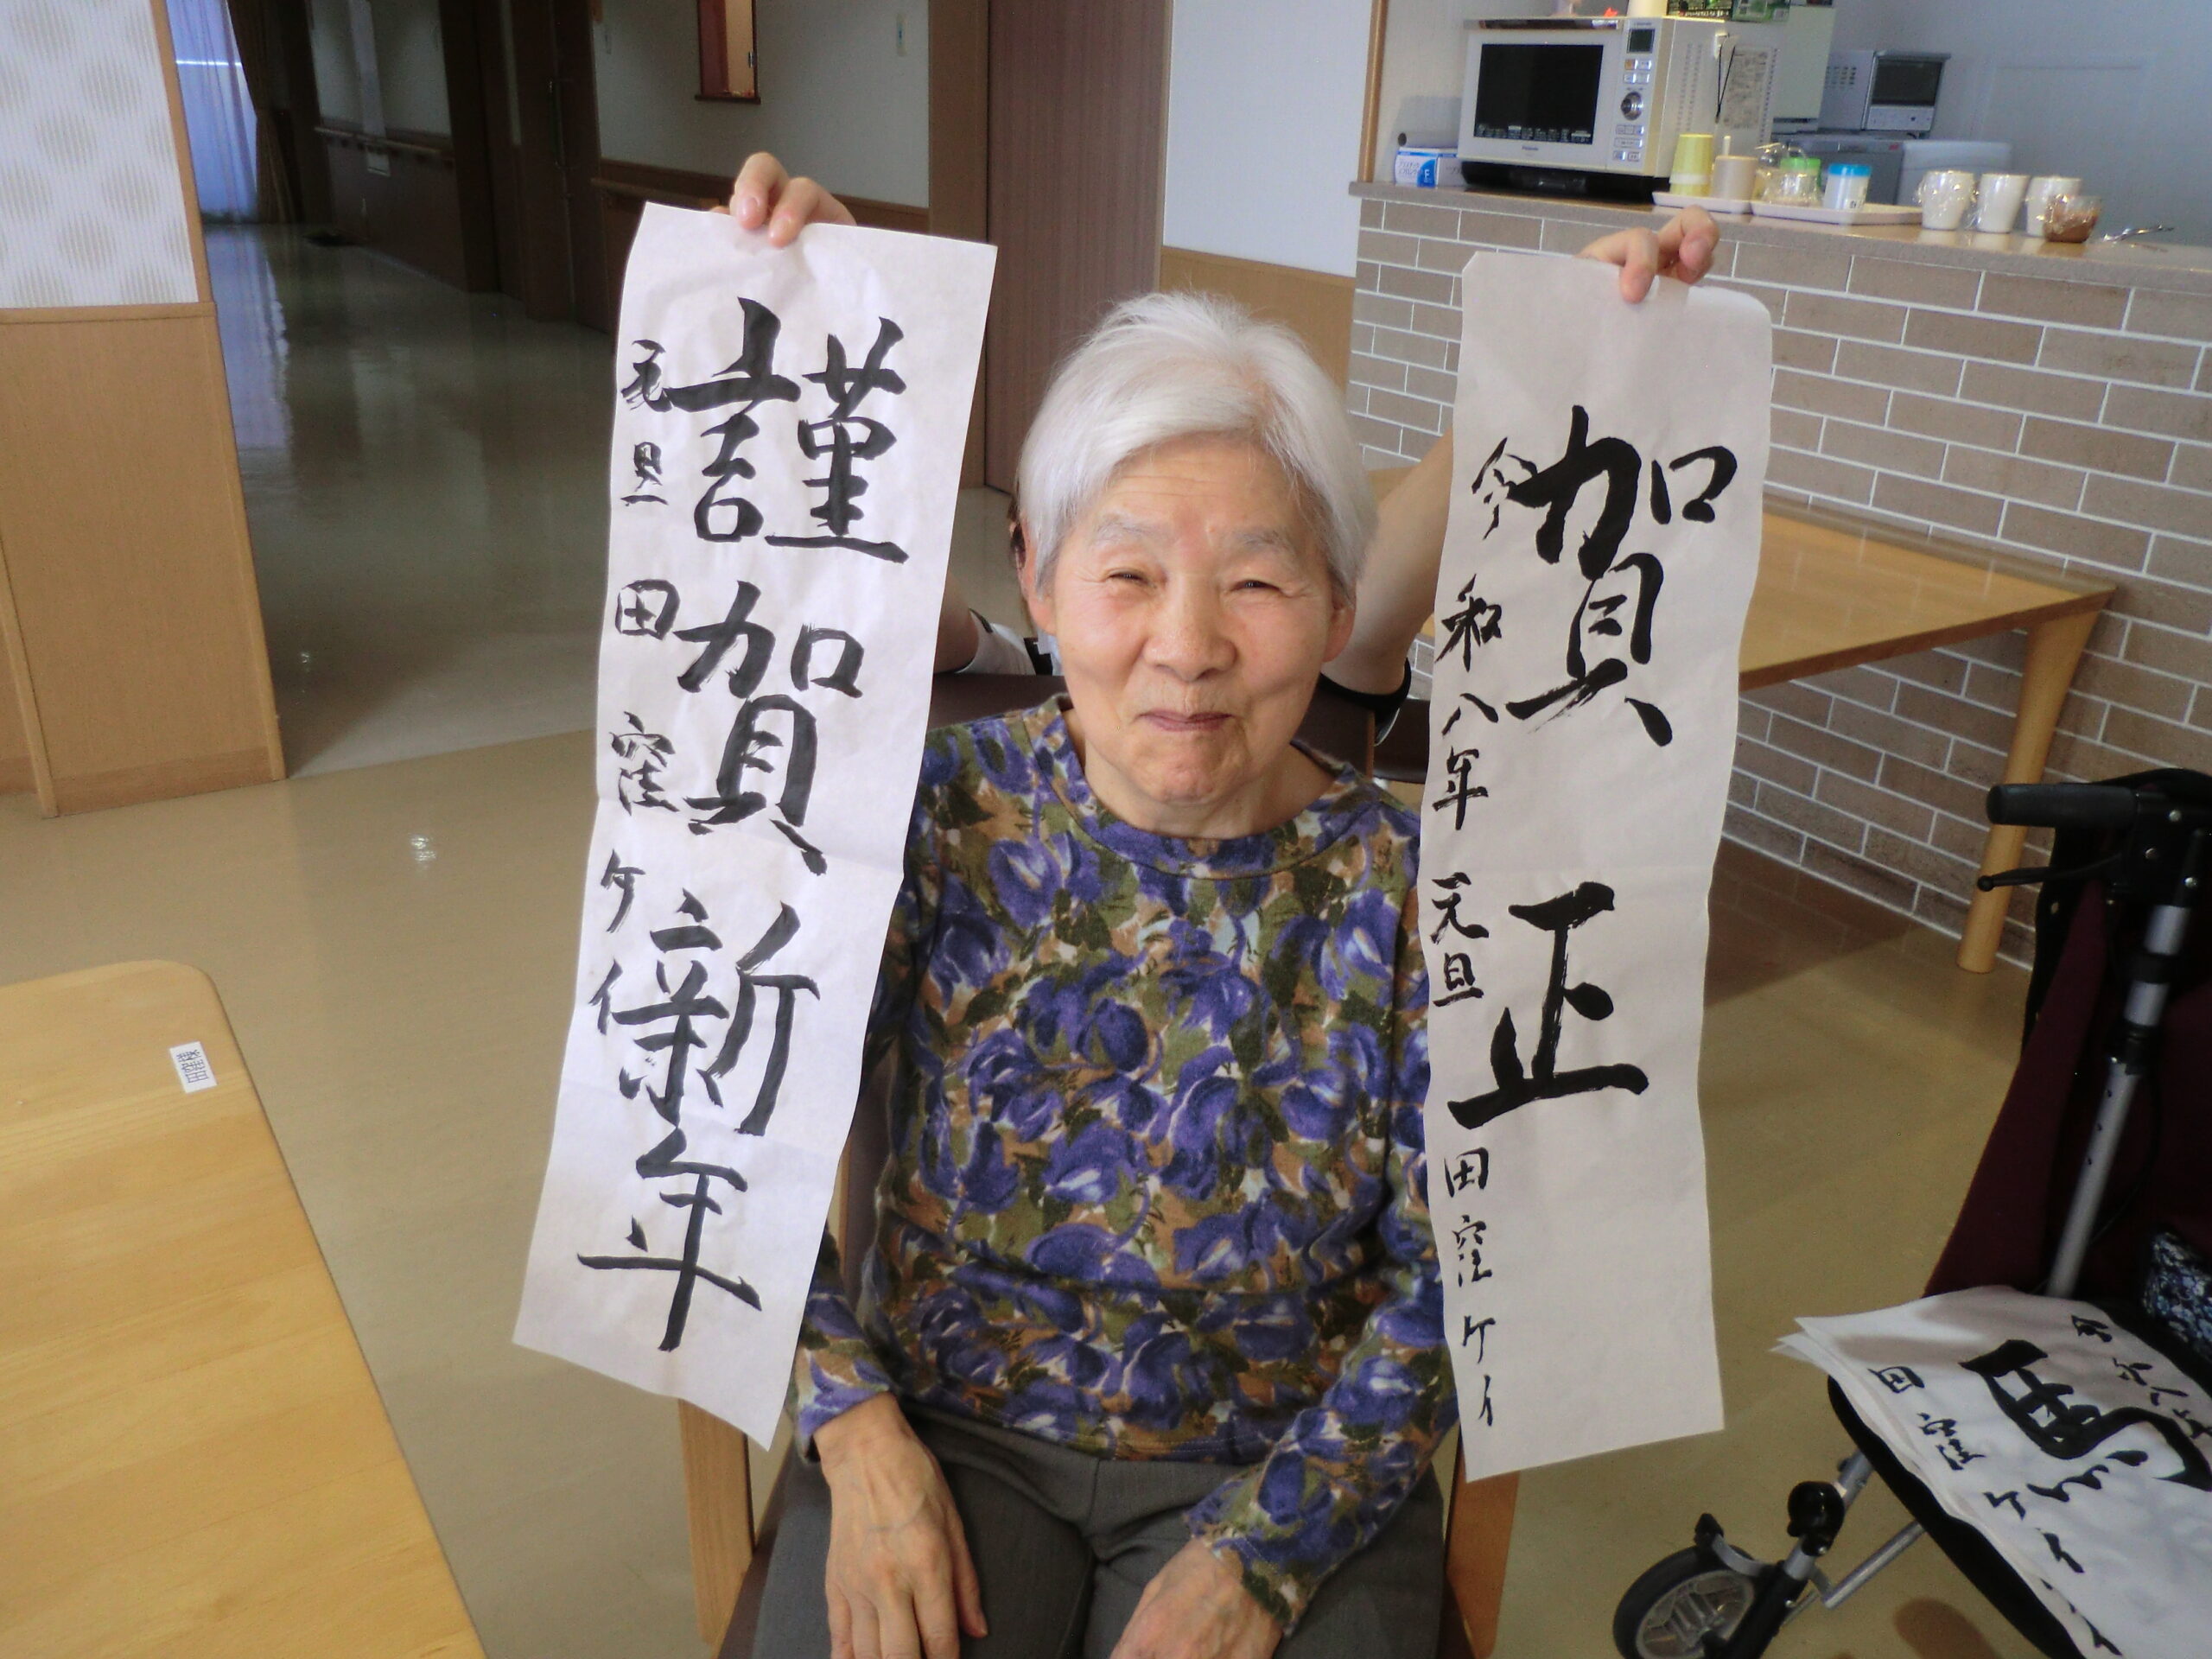 賀正
令和八年 元旦 田窪ケイ
謹賀新年
元旦 田窪ケイ
田窪ケイ